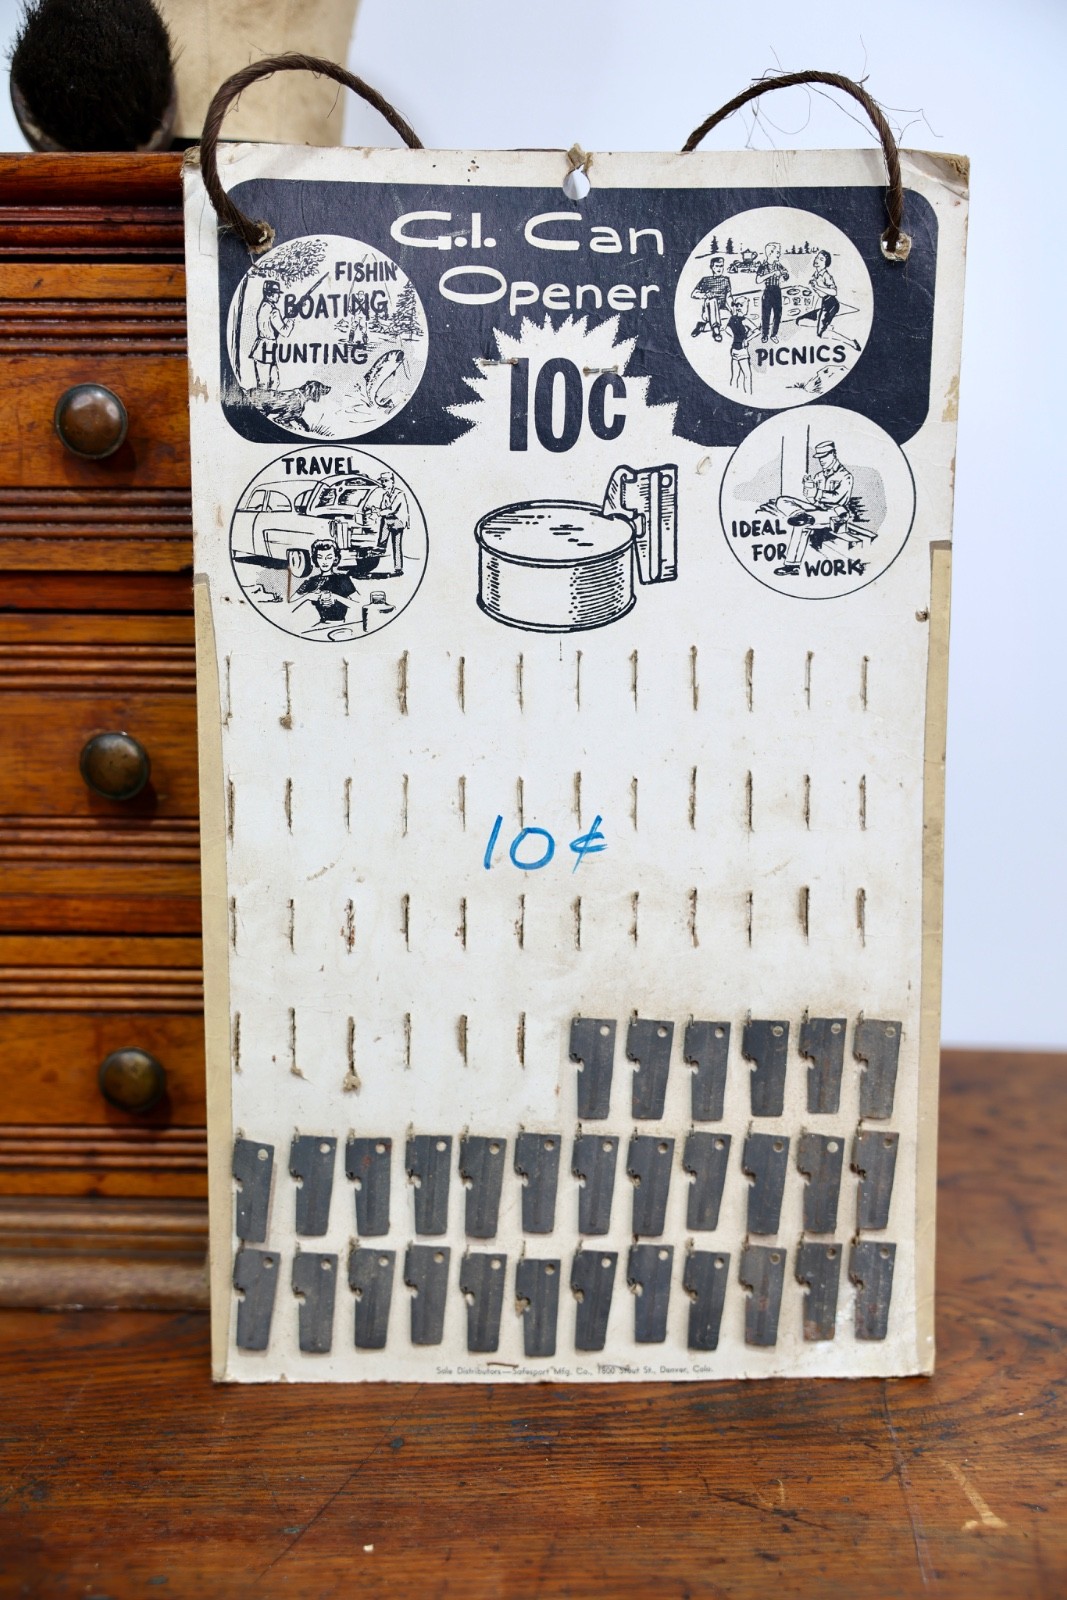 G.I. Can
Opener
10¢
FISHIN'
BOATING
HUNTING
PICNICS
TRAVEL
IDEAL
FOR
WORK
10¢
Sole Distributors—Safesport Mfg. Co., 1800 Stout St., Denver, Colo.